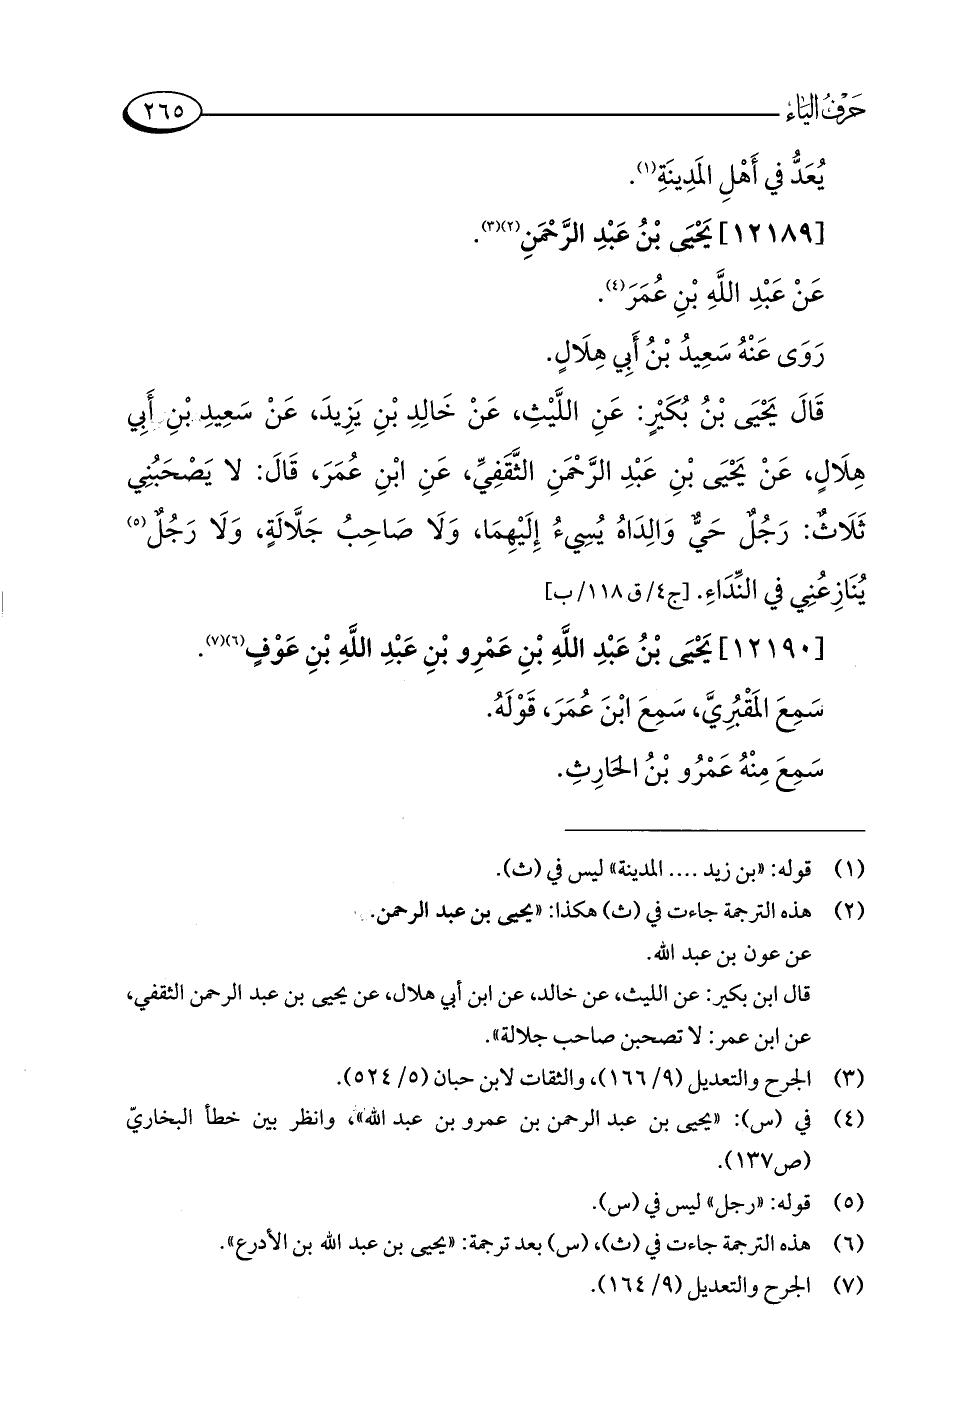 حَرْفُ اليَاءِ ٢٦٥
يُعَدُّ فِي أَهْلِ المَدِينَةِ(١).
[١٢١٨٩] يَحْيَى بْنُ عَبْدِ الرَّحْمَنِ(٢)(٣).
عَنْ عَبْدِ اللَّهِ بْنِ عُمَرَ(٤).
رَوَى عَنْهُ سَعِيدُ بْنُ أَبِي هِلَالٍ.
قَالَ يَحْيَى بْنُ بُكَيْرٍ: عَنِ اللَّيْثِ، عَنْ خَالِدِ بْنِ يَزِيدَ، عَنْ سَعِيدِ بْنِ أَبِي
هِلَالٍ، عَنْ يَحْيَى بْنِ عَبْدِ الرَّحْمَنِ الثَّقَفِيِّ، عَنِ ابْنِ عُمَرَ، قَالَ: لا يَصْحَبُنِي
ثَلَاثٌ: رَجُلٌ حَيٌّ وَالِدَاهُ يُسِيءُ إِلَيْهِمَا، وَلَا صَاحِبُ جَلَّالَةٍ، وَلَا رَجُلٌ(٥)
يُنَازِعُنِي فِي النِّدَاءِ. [ج٤/ ق ١١٨/ ب]
[١٢١٩٠] يَحْيَى بْنُ عَبْدِ اللَّهِ بْنِ عَمْرِو بْنِ عَبْدِ اللَّهِ بْنِ عَوْفٍ(٦)(٧).
سَمِعَ المَقْبُرِيَّ، سَمِعَ ابْنَ عُمَرَ، قَوْلَهُ.
سَمِعَ مِنْهُ عَمْرُو بْنُ الحَارِثِ.
(١) قوله: «بن زيد .... المدينة» ليس في (ث).
(٢) هذه الترجمة جاءت في (ث) هكذا: «يحيى بن عبد الرحمن.
عن عون بن عبد الله.
قال ابن بكير: عن الليث، عن خالد، عن ابن أبي هلال، عن يحيى بن عبد الرحمن الثقفي،
عن ابن عمر: لا تصحبن صاحب جلالة».
(٣) الجرح والتعديل (٩/ ١٦٦)، والثقات لابن حبان (٥/ ٥٢٤).
(٤) في (س): «يحيى بن عبد الرحمن بن عمرو بن عبد الله»، وانظر بين خطأ البخاريّ
(ص١٣٧).
(٥) قوله: «رجل» ليس في (س).
(٦) هذه الترجمة جاءت في (ث)، (س) بعد ترجمة: «يحيى بن عبد الله بن الأدرع».
(٧) الجرح والتعديل (٩/ ١٦٤).